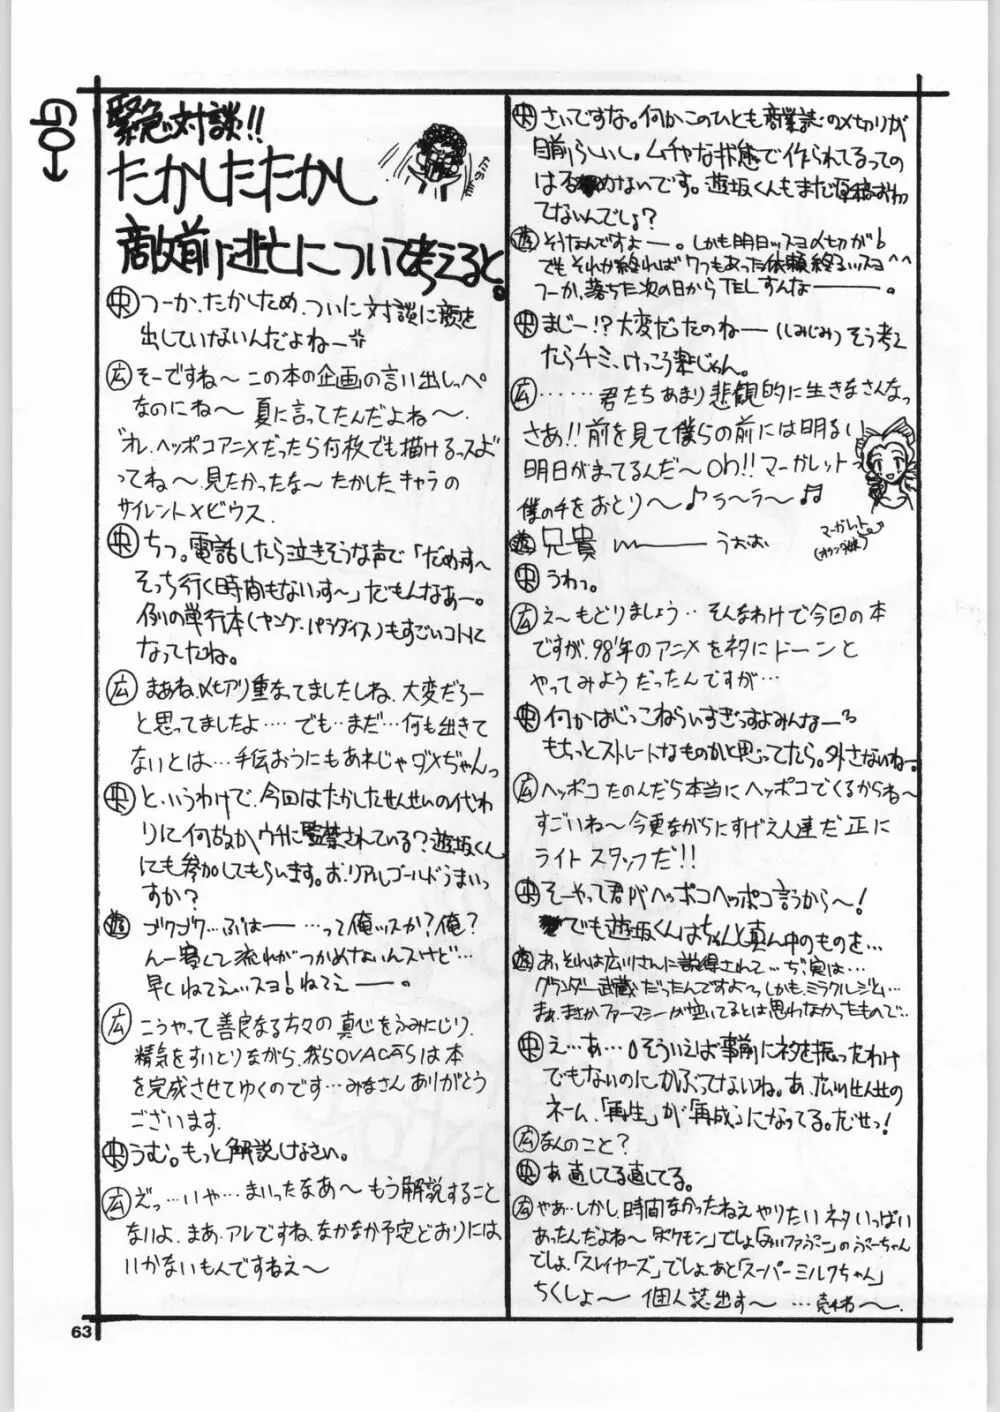 GO→
緊急対談!!
たかしたたかし
敵前逃亡について考えると。
央 つーか、たかしため、ついに対談に顔を
出していないんだよねー
広 そーですね〜 この本の企画の言い出しっぺ
なのにね〜 夏に言ってたんだよね〜.
"オレ、ヘッポコアニメだったら何枚でも描けるっスよ"
ってね〜 見たかったな〜 たかしたキャラの
サイレントメビウス.
央 ちっ。電話したら泣きそうな声で「だめっす〜
そっち行く時間もないっす〜」だもんなぁー。
例の単行本(ヤング・パラダイス)もすごいコトに
なってたね。
広 まぁね、〆切り重なってましたしね、大変だろー
と思ってましたよ…. でも‥まだ…何も出きて
ないとは…手伝おうにもあれじゃダメぢゃんっ
央 というわけで、今回はたかしたせんせいの代わ
りに何故かウチに監禁されている?遊坂くん
にも参加してもらいます。お、リアルゴールドうまいっ
すか?
遊 ゴクゴク…ぷはー …って俺ッスか?俺?
んー 寒くて流れがつかめないんスけど…
早くねてえッスヨ! ねてえー。
広 こうやって善良なる方々の真心をふみにじり、
精気をすいとりながら、我らOVACASは本
を完成させてゆくのです…みなさんありがとう
ございます.
央 うむ。もっと解説しなさい。
広 えっ…いや…まいったなあ〜 もう解説すること
ないよ、まあ、アレですね、なかなか予定どおりには
いかないもんですねえ〜
央 さいですな。何かこのひとも商業誌の〆切りが
目前らしいし。ムチャな状態で作られてるっての
は否めないです。遊坂くんもまだ原稿おわっ
てないんでしょ?
遊 そうなんですよー。しかも明日ッスヨ〆切が
でもそれが終れば7つもあった依頼終るッスヨ^^
つーか、落ちた次の日からTELすんなー。
央 まじー!?大変だったのねー(しみじみ)そう考え
たらチミ、けっこう楽じゃん。
広 …… 君たち あまり悲観的に生きなさんなっ
さあ!! 前を見て僕らの前には明るい
明日がまってるんだ〜 Oh!! マーガレットっ
僕の手をおとり〜♪ラ〜ラ〜♫
マーガレット
(オランダ娘)
遊 兄貴ー うおお
央 うわっ。
広 え〜 もどりましょう‥ そんなわけで今回の本
ですが、98'年のアニメをネタにドーンと
やってみようだったんですが…
央 何かはじっこねらいすぎっすよみんなー
もちっとストレートなものかと思ってたら。外さないねー。
広 ヘッポコたのんだら本当にヘッポコでくるからね〜
すごいね〜 今更ながらにすげえ人達だ 正に
ライトスタッフだ!!
央 そーやって君がヘッポコヘッポコ言うから〜!
でも遊坂くんはちゃんと真ん中のものを…
遊 あ、それは広川さんに説得されて…ぢ、実は…
グランダー武蔵だったんですよ〜っしかもミラクルジム…
まぁ、まさかファーマシーが空いてるとは思わなかったもので…
央 え…あ…そういえば事前にネタを振ったわけ
でもないのに、かぶってないね。あ、広川せんせの
ネーム、「再生」が「再成」になってる。だせっ!
広 なんのこと?
央 あ 直してる直してる。
広 やあ…しかし、時間なかったねえ やりたいネタいっぱい
あったんだよね〜 「ポケモン」でしょ「みいファぷー」のぷーちゃん
でしょ、「スレイヤーズ」でしょ、あと「スーパーミルクちゃん」
ちくしょ〜 個人誌出す〜 …売れね〜.
63